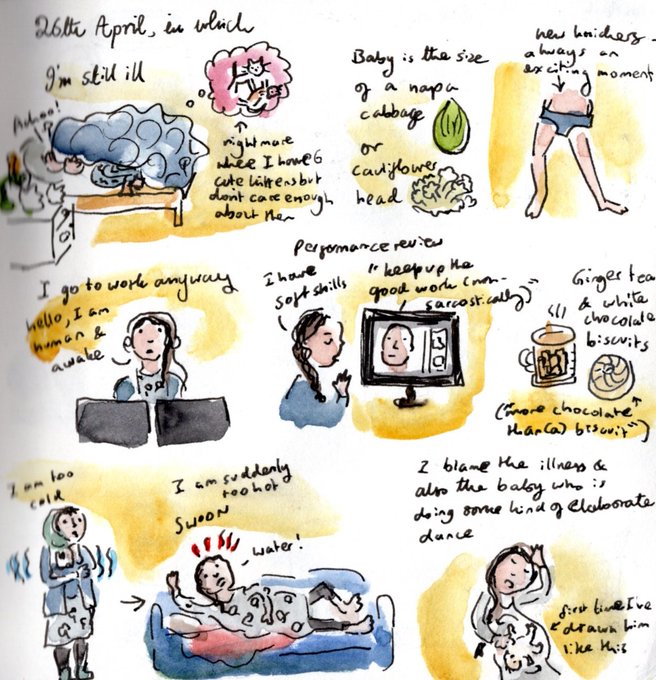 26th April, in which
I'm still ill
Achoo!
nightmare
where I have 6
cute kittens but
don't care enough
about them
Baby is the size
of a napa
cabbage
or
cauliflower
head
new knickers -
always an
exciting moment
I go to work anyway
hello, I am
human &
awake
Performance review
I have
soft skills
"keep up the
good work (non-
sarcastically)"
Ginger tea
& white
chocolate
biscuits
("more chocolate
than (a) biscuit")
I am too
cold
I am suddenly
too hot
SWOON
water!
I blame the illness &
also the baby who is
doing some kind of elaborate
dance
first time I've
drawn him
like this